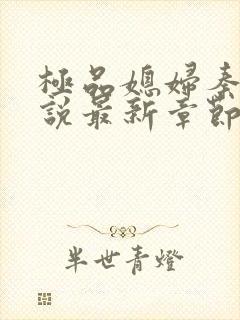 極品媳婦秦
說最新章節
半世青燈